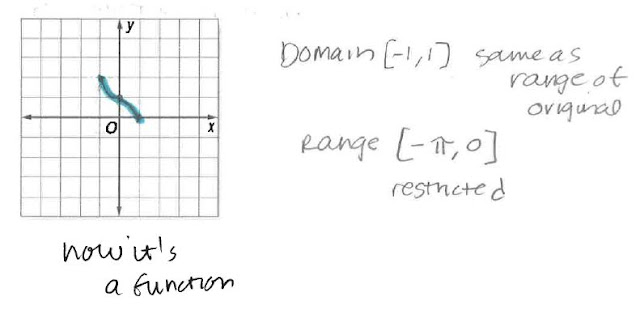 y
O
x
Domain [-1,1] same as
range of
original
Range [-π,0]
restricted
now it's
a function